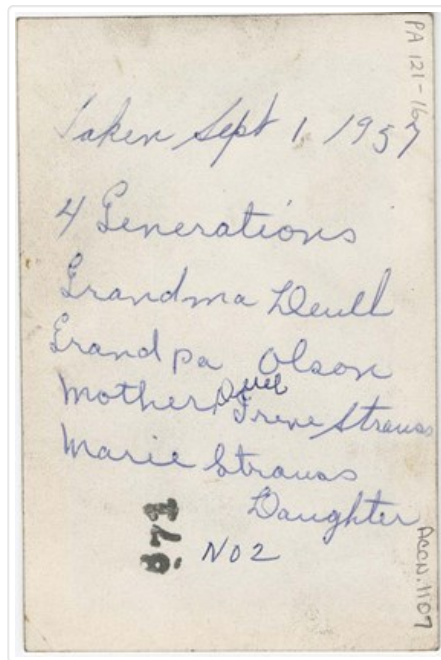 PA 121-16
Taken Sept 1, 1957
4 Generations
Grandma Deull
Grandpa Olson
Mother, Irene Strauss
Marie Strauss
Daughter
872
NO 2
ACCN. 1107